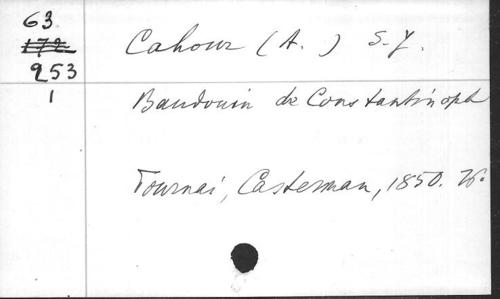 63
172
253
1
Cahour (A.) S.J.
Baudouin de Constantinople
Tournai, Casterman, 1850.